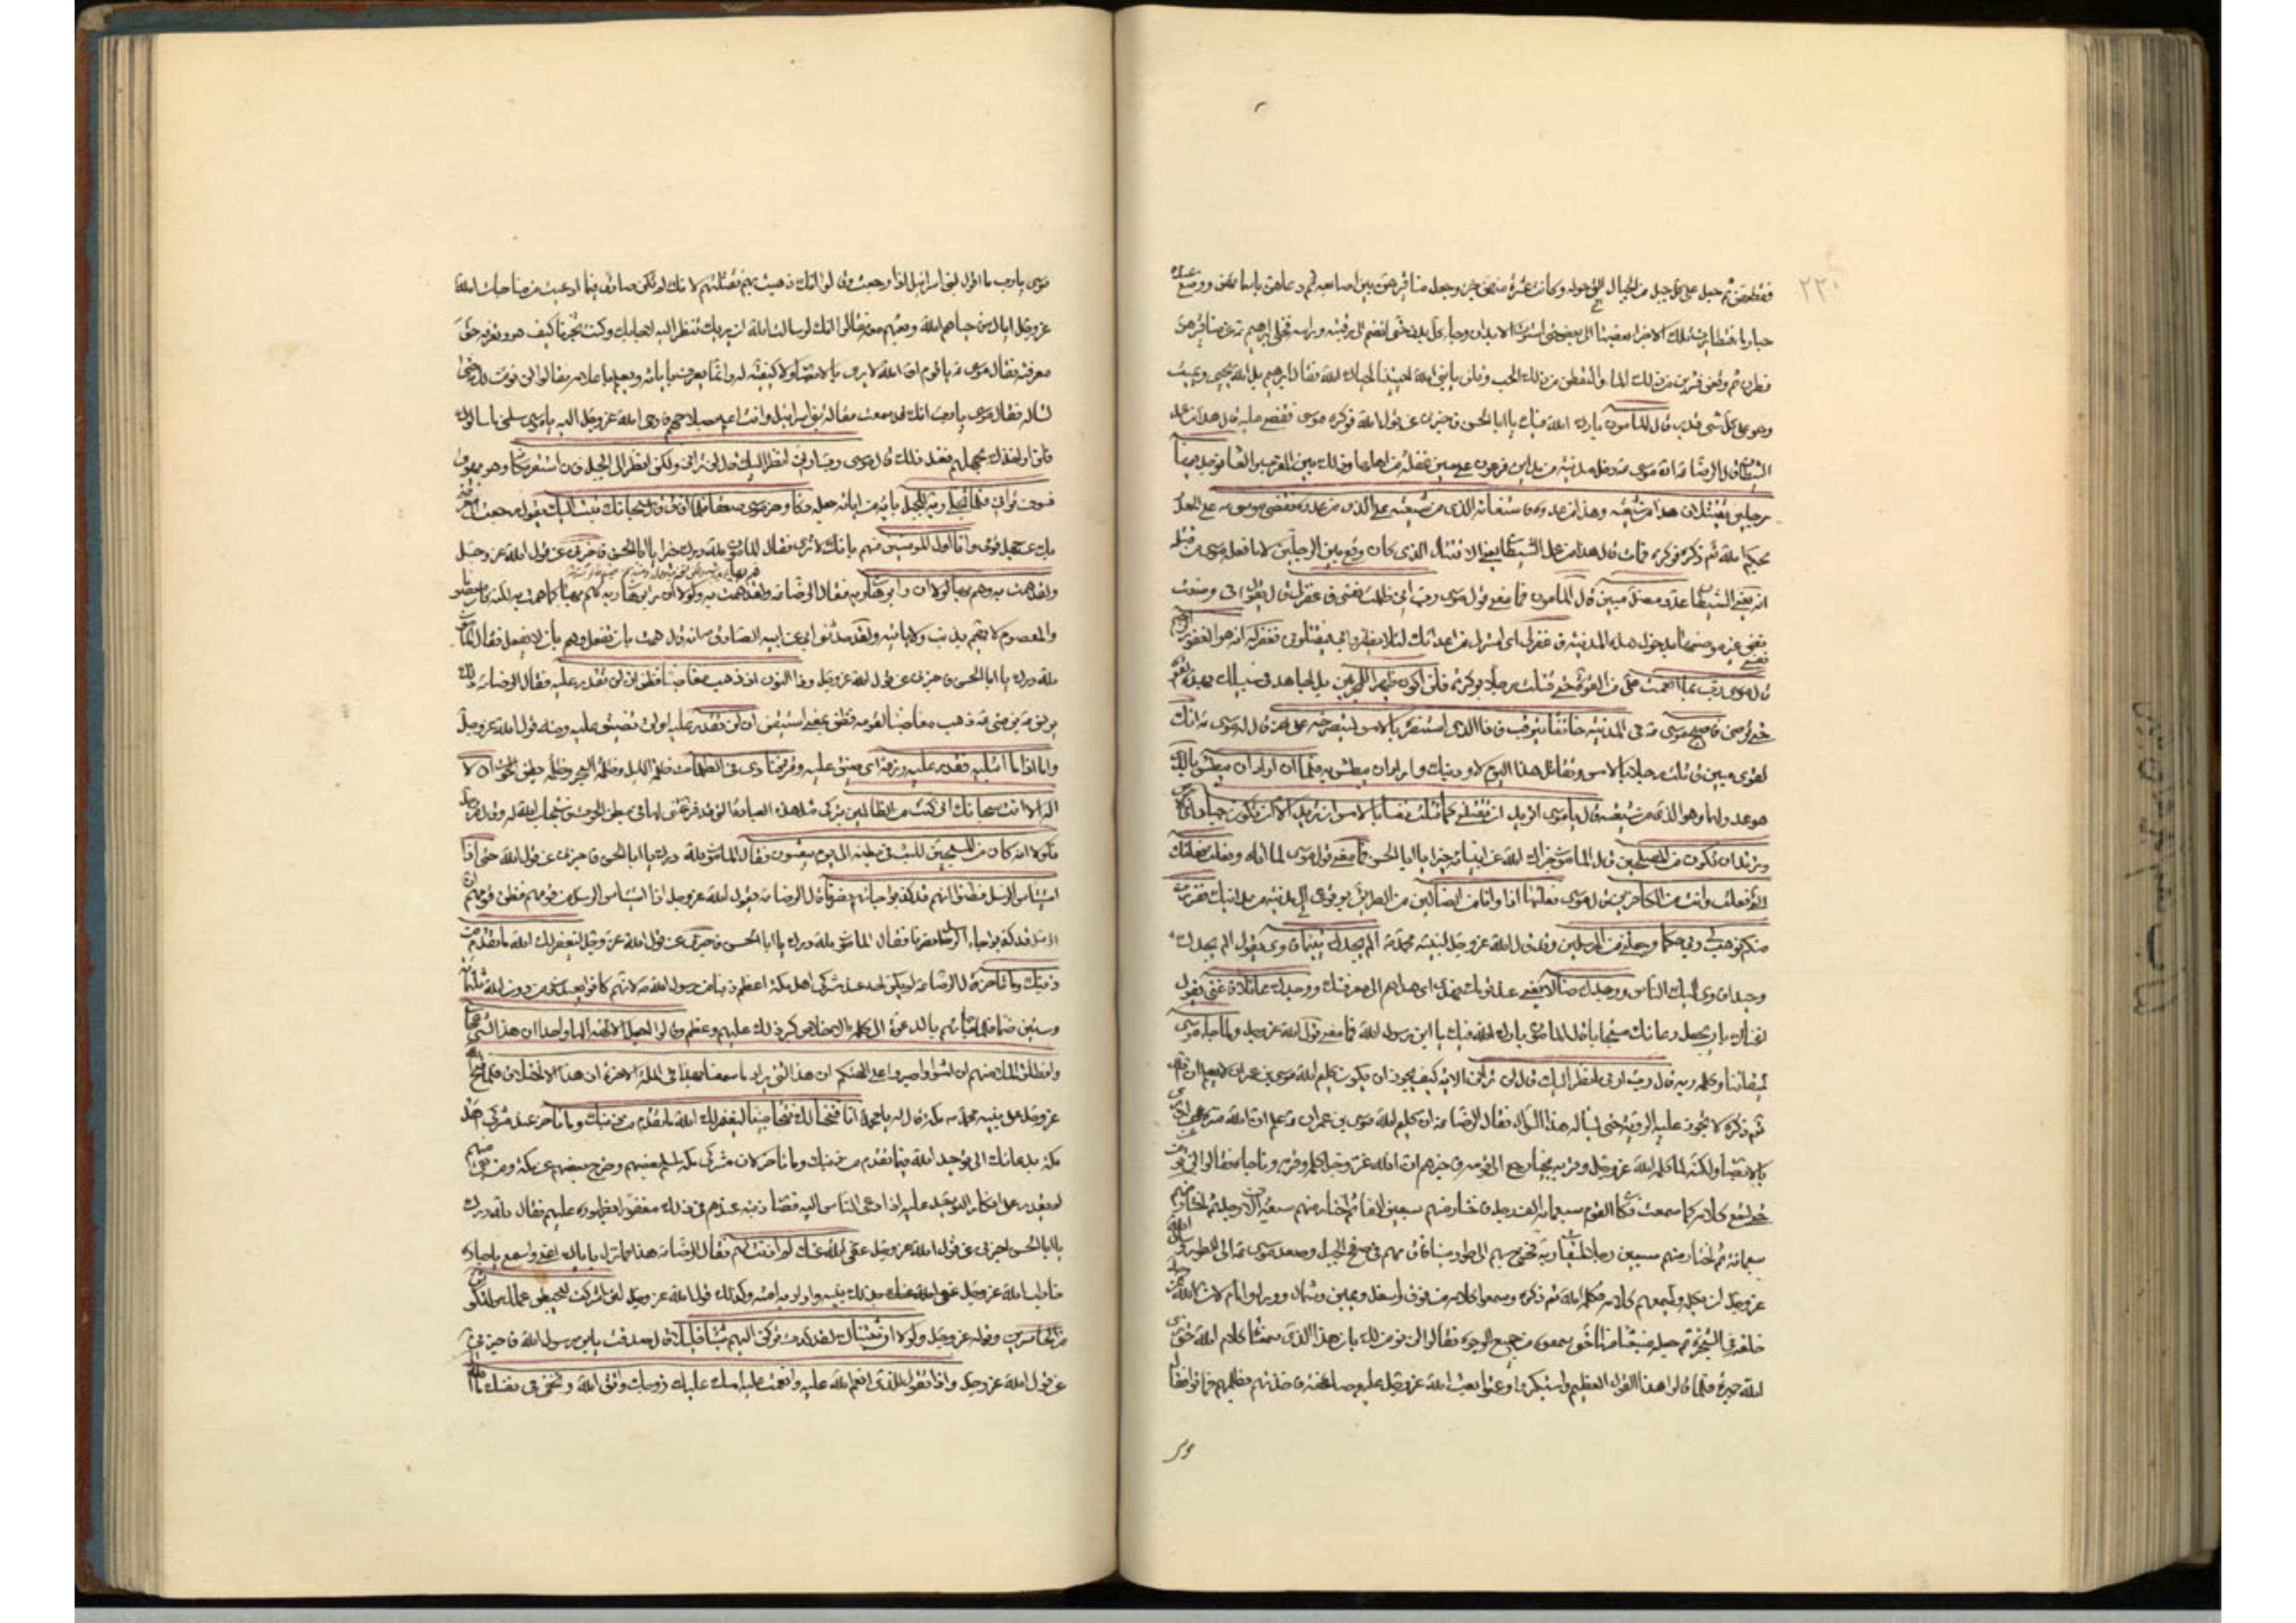 ٢٢٠
فقطعهن ثم جعل على كل جبل من الجبال التي حوله وكانت عشرة منهن جزء وجعل مناقيرهن بين اصابعه ثم دعاهن باسمائهن ووضع عنده
حبا وماء فتطايرت تلك الاجزاء بعضها الى بعض حتى استوت الابدان وجاء كل بدن حتى انضم الى رقبته وراسه فخلى ابرهيم ع عن مناقيرهن
فطرن ثم وقعن فشربن من ذلك الماء والتقطن من ذلك الحب وقلن يا نبي الله احييتنا احياك الله فقال ابرهيم بل الله يحيي ويميت
وهو على كل شي قدير قال المأمون بارك الله فيك يا ابا الحسن فاخبرني عن قول الله فوكزه موسى فقضى عليه قال هذا من عمل
الشيطان قال الرضا ع ان موسى ع دخل مدينة من مداين فرعون على حين غفلة من اهلها وذلك بين المغرب والعشا فوجد فيها
رجلين يقتتلان هذا من شيعته وهذا من عدوه فاستغاثه الذي من شيعته على الذي من عدوه فقضى موسى ع على العدو
بحكم الله تم ذكره فوكزه فمات قال هذا من عمل الشيطان يعني الاقتتال الذي كان وقع بين الرجلين لا ما فعله موسى من قتله
انه يعني الشيطان عدو مضل مبين قال المأمون فما معنى قول موسى رب اني ظلمت نفسي فاغفر لي قال يقول اني وضعت
نفسي غير موضعها بدخول هذه المدينة فاغفر لي اي استرني من اعدائك لئلا يظفروا بي فيقتلوني فغفر له انه هو الغفور الرحيم
قال موسى رب بما انعمت علي من القوة حتى قتلت رجلا بوكزة فلن اكون ظهيرا للمجرمين بل اجاهد في سبيلك بهذه القوة
حتى ترضى فاصبح موسى ع في المدينة خائفا يترقب فاذا الذي استنصره بالامس يستصرخه على اخر قال له موسى ع انك
لغوي مبين قاتلت رجلا بالامس وتقاتل هذا اليوم لاودبنك واراد ان يبطش به فلما ان اراد ان يبطش بالذي
هو عدو لهما وهو الذي من شيعته قال يا موسى اتريد ان تقتلني كما قتلت نفسا بالامس ان تريد الا ان تكون جبارا في الارض
وتريد ان تكون من المصلحين قال المامون جزاك الله عن انبيائه خيرا يا ابا الحسن فما معنى قول موسى لما اتاه وفعلت فعلتك
التي فعلت وانت من الكافرين قال موسى فعلتها اذا وانا من الضالين عن الطريق بوقوعي الى مدينة من مداينك ففررت
منكم فوهب لي ربي حكما وجعلني من المرسلين وقد قال الله عز وجل لنبيه محمد ص الم يجدك يتيما فاوى يقول الم يجدك
وحيدا فاوى اليك الناس ووجدك ضالا يعني عند قومك فهدى اي هداهم الى معرفتك ووجدك عائلا فاغنى يقول
اغناك بان جعل دعائك مستجابا قال المامون بارك الله فيك يا ابن رسول الله فما معنى قول الله عز وجل ولما جاء موسى
لميقاتنا وكلمه ربه قال رب ارني انظر اليك قال لن تراني الاية كيف يجوز ان يكون كليم الله موسى بن عمران لا يعلم ان الله
تم ذكره لا تجوز عليه الرؤية حتى يسأله هذا السؤال فقال الرضا ع ان كليم الله موسى بن عمران ع علم ان الله منزه عن ان يرى
بالابصار ولكنه لما كلمه الله عز وجل وقربه نجيا رجع الى قومه فاخبرهم ان الله عز وجل كلمه وقربه وناجاه فقالوا لن نؤمن
حتى نسمع كلامه كما سمعت وكان القوم سبعمائة الف رجل فاختار منهم سبعين الفا ثم اختار منهم سبعة الاف رجل ثم اختار منهم
سبعمائة ثم اختار منهم سبعين رجلا لميقات ربه فخرج بهم الى طور سينا فاقامهم في صفح الجبل وصعد موسى ع الى الطور وسأل الله
عز وجل ان يكلمه ويسمعهم كلامه فكلمه الله تم ذكره وسمعوا كلامه من فوق واسفل ويمين وشمال ووراء وامام لان الله عز وجل
خلقه في الشجرة ثم جعله منبعثا منها حتى سمعوه من جميع الوجوه فقالوا لن نؤمن لك بان هذا الذي سمعنا كلام الله حتى نرى
الله جهرة فلما قالوا هذا القول العظيم واستكبروا وعتوا بعث الله عز وجل عليهم صاعقة فاخذتهم بظلمهم فماتوا فقال
موسى يا رب ما اقول لبني اسرائيل اذا رجعت وقالوا انك ذهبت بهم فقتلتهم لانك لم تكن صادقا فيما ادعيت من مناجات الله
عز وجل اياك فاحياهم الله وبعثهم معه فقالوا انك لو سالت الله ان يريك تنظر اليه لاجابك وكنت تخبرنا كيف هو ونعرفه حق
معرفته فقال موسى ع يا قوم ان الله لا يرى بالابصار ولا كيفية له وانما يعرف باياته ويعلم باعلامه فقالوا لن نؤمن لك حتى
تساله فقال موسى يا رب انك قد سمعت مقالة بني اسرائيل وانت اعلم بصلاحهم فاوحى الله عز وجل اليه يا موسى سلني ما سالوك
فلن اواخذك بجهلهم فعند ذلك قال موسى رب ارني انظر اليك قال لن تراني ولكن انظر الى الجبل فان استقر مكانه وهو يهوي
فسوف تراني فلما تجلى ربه للجبل باية من اياته جعله دكا وخر موسى صعقا فلما افاق قال سبحانك تبت اليك يقول رجعت الى معرفتي
بك عن جهل قومي وانا اول المومنين منهم بانك لا ترى فقال المامون لله درك يا ابا الحسن فاخبرني عن قول الله عز وجل
ولقد همت به وهم بها لولا ان رأى برهان ربه فقال الرضا ع ولقد همت به ولولا ان رأى برهان ربه لهم بها كما همت به لكنه كان معصوما
والمعصوم لا يهم بذنب ولا ياتيه ولقد حدثني ابي عن ابيه الصادق ع انه قال همت بان تفعل وهم بان لا يفعل فقال المامون
لله درك يا ابا الحسن فاخبرني عن قول الله عز وجل وذا النون اذ ذهب مغاضبا فظن ان لن نقدر عليه فقال الرضا ع ذلك
يونس بن متى ع ذهب مغاضبا لقومه فظن بمعنى استيقن ان لن نقدر عليه اي لن نضيق عليه ومنه قول الله عز وجل
واما اذا ما ابتليه فقدر عليه رزقه اي ضيق عليه وقتر فنادى في الظلمات ظلمة الليل وظلمة البحر وظلمة بطن الحوت ان لا
اله الا انت سبحانك اني كنت من الظالمين بتركي مثل هذه العبادة التي قد فرغتني لها في بطن الحوت فاستجاب الله له وقال عز وجل
فلولا انه كان من المسبحين للبث في بطنه الى يوم يبعثون فقال المامون لله درك يا ابا الحسن فاخبرني عن قول الله حتى اذا
استياس الرسل وظنوا انهم قد كذبوا جاءهم نصرنا قال الرضا ع يقول الله عز وجل اذا استياس الرسل من قومهم فظن قومهم ان
الرسل قد كذبوا جاء الرسل نصرنا فقال المامون لله درك يا ابا الحسن فاخبرني عن قول الله عز وجل ليغفر لك الله ما تقدم من
ذنبك وما تاخر قال الرضا ع لم يكن احد عند مشركي اهل مكة اعظم ذنبا من رسول الله ص لانهم كانوا يعبدون من دون الله ثلثمائة
وستين صنما فلما جاءهم بالدعوة الى كلمة الاخلاص كبر ذلك عليهم وعظم وقالوا اجعل الالهة الها واحدا ان هذا لشي عجاب
وانطلق الملا منهم ان امشوا واصبروا على الهتكم ان هذا لشي يراد ما سمعنا بهذا في الملة الاخرة ان هذا الا اختلاق فلما فتح الله
عز وجل على نبيه محمد ص مكة قال له يا محمد انا فتحنا لك فتحا مبينا ليغفر لك الله ما تقدم من ذنبك وما تاخر عند مشركي اهل
مكة بدعائك الى توحيد الله فيما تقدم من ذنبك وما تاخر لان مشركي مكة اسلم بعضهم وخرج بعضهم عن مكة ومن بقي منهم
لم يقدر على انكار التوحيد عليه اذا دعى الناس اليه فصار ذنبه عندهم في ذلك مغفورا بظهوره عليهم فقال لله درك
يا ابا الحسن اخبرني عن قول الله عز وجل عفى الله عنك لم اذنت لهم فقال الرضا ع هذا مما نزل باياك اعني واسمعي يا جارة
خاطب الله عز وجل بذلك نبيه واراد به امته وكذلك قول الله عز وجل لئن اشركت ليحبطن عملك ولتكونن
من الخاسرين وقوله عز وجل ولولا ان ثبتناك لقد كدت تركن اليهم شيئا قليلا قال صدقت يا ابن رسول الله فاخبرني
عن قول الله عز وجل واذ تقول للذي انعم الله عليه وانعمت عليه امسك عليك زوجك واتق الله وتخفي في نفسك ما الله